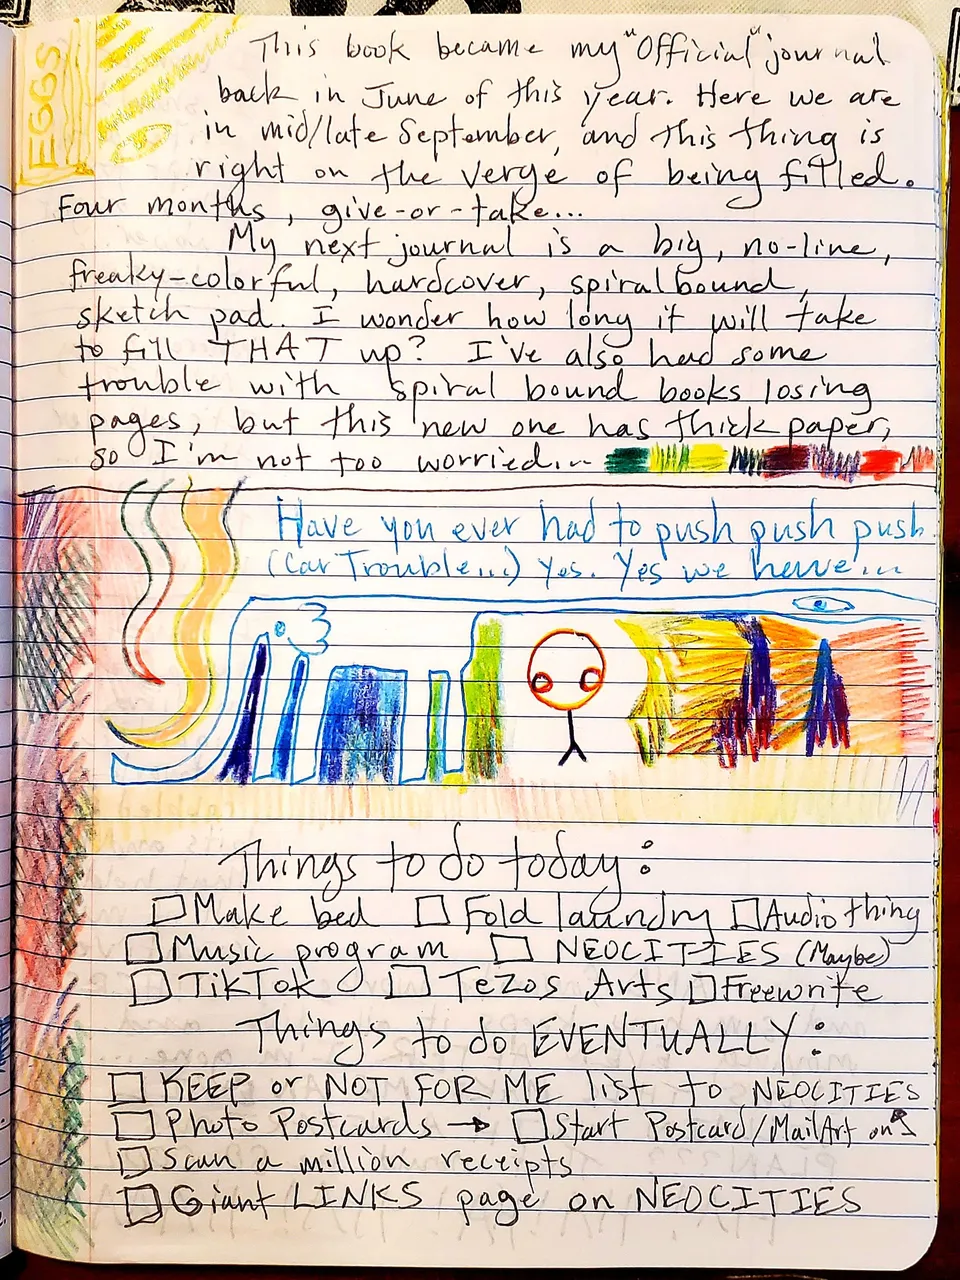 EGGS
This book became my "Official" journal
back in June of this year. Here we are
in mid/late September, and this thing is
right on the verge of being filled.
Four months, give-or-take...
My next journal is a big, no-line,
freaky-colorful, hardcover, spiralbound,
sketch pad. I wonder how long it will take
to fill THAT up? I've also had some
trouble with spiral bound books losing
pages, but this new one has thick paper,
so I'm not too worried...
Have you ever had to push push push
(Car Trouble...) Yes. Yes we have...
Things to do today:
Make bed Fold laundry Audio thing
Music program NEOCITIES (Maybe)
TikTok Tezos Arts Freewrite
Things to do EVENTUALLY:
KEEP or NOT FOR ME list to NEOCITIES
Photo Postcards → Start Postcard/MailArt on
Scan a million receipts
Giant LINKS page on NEOCITIES